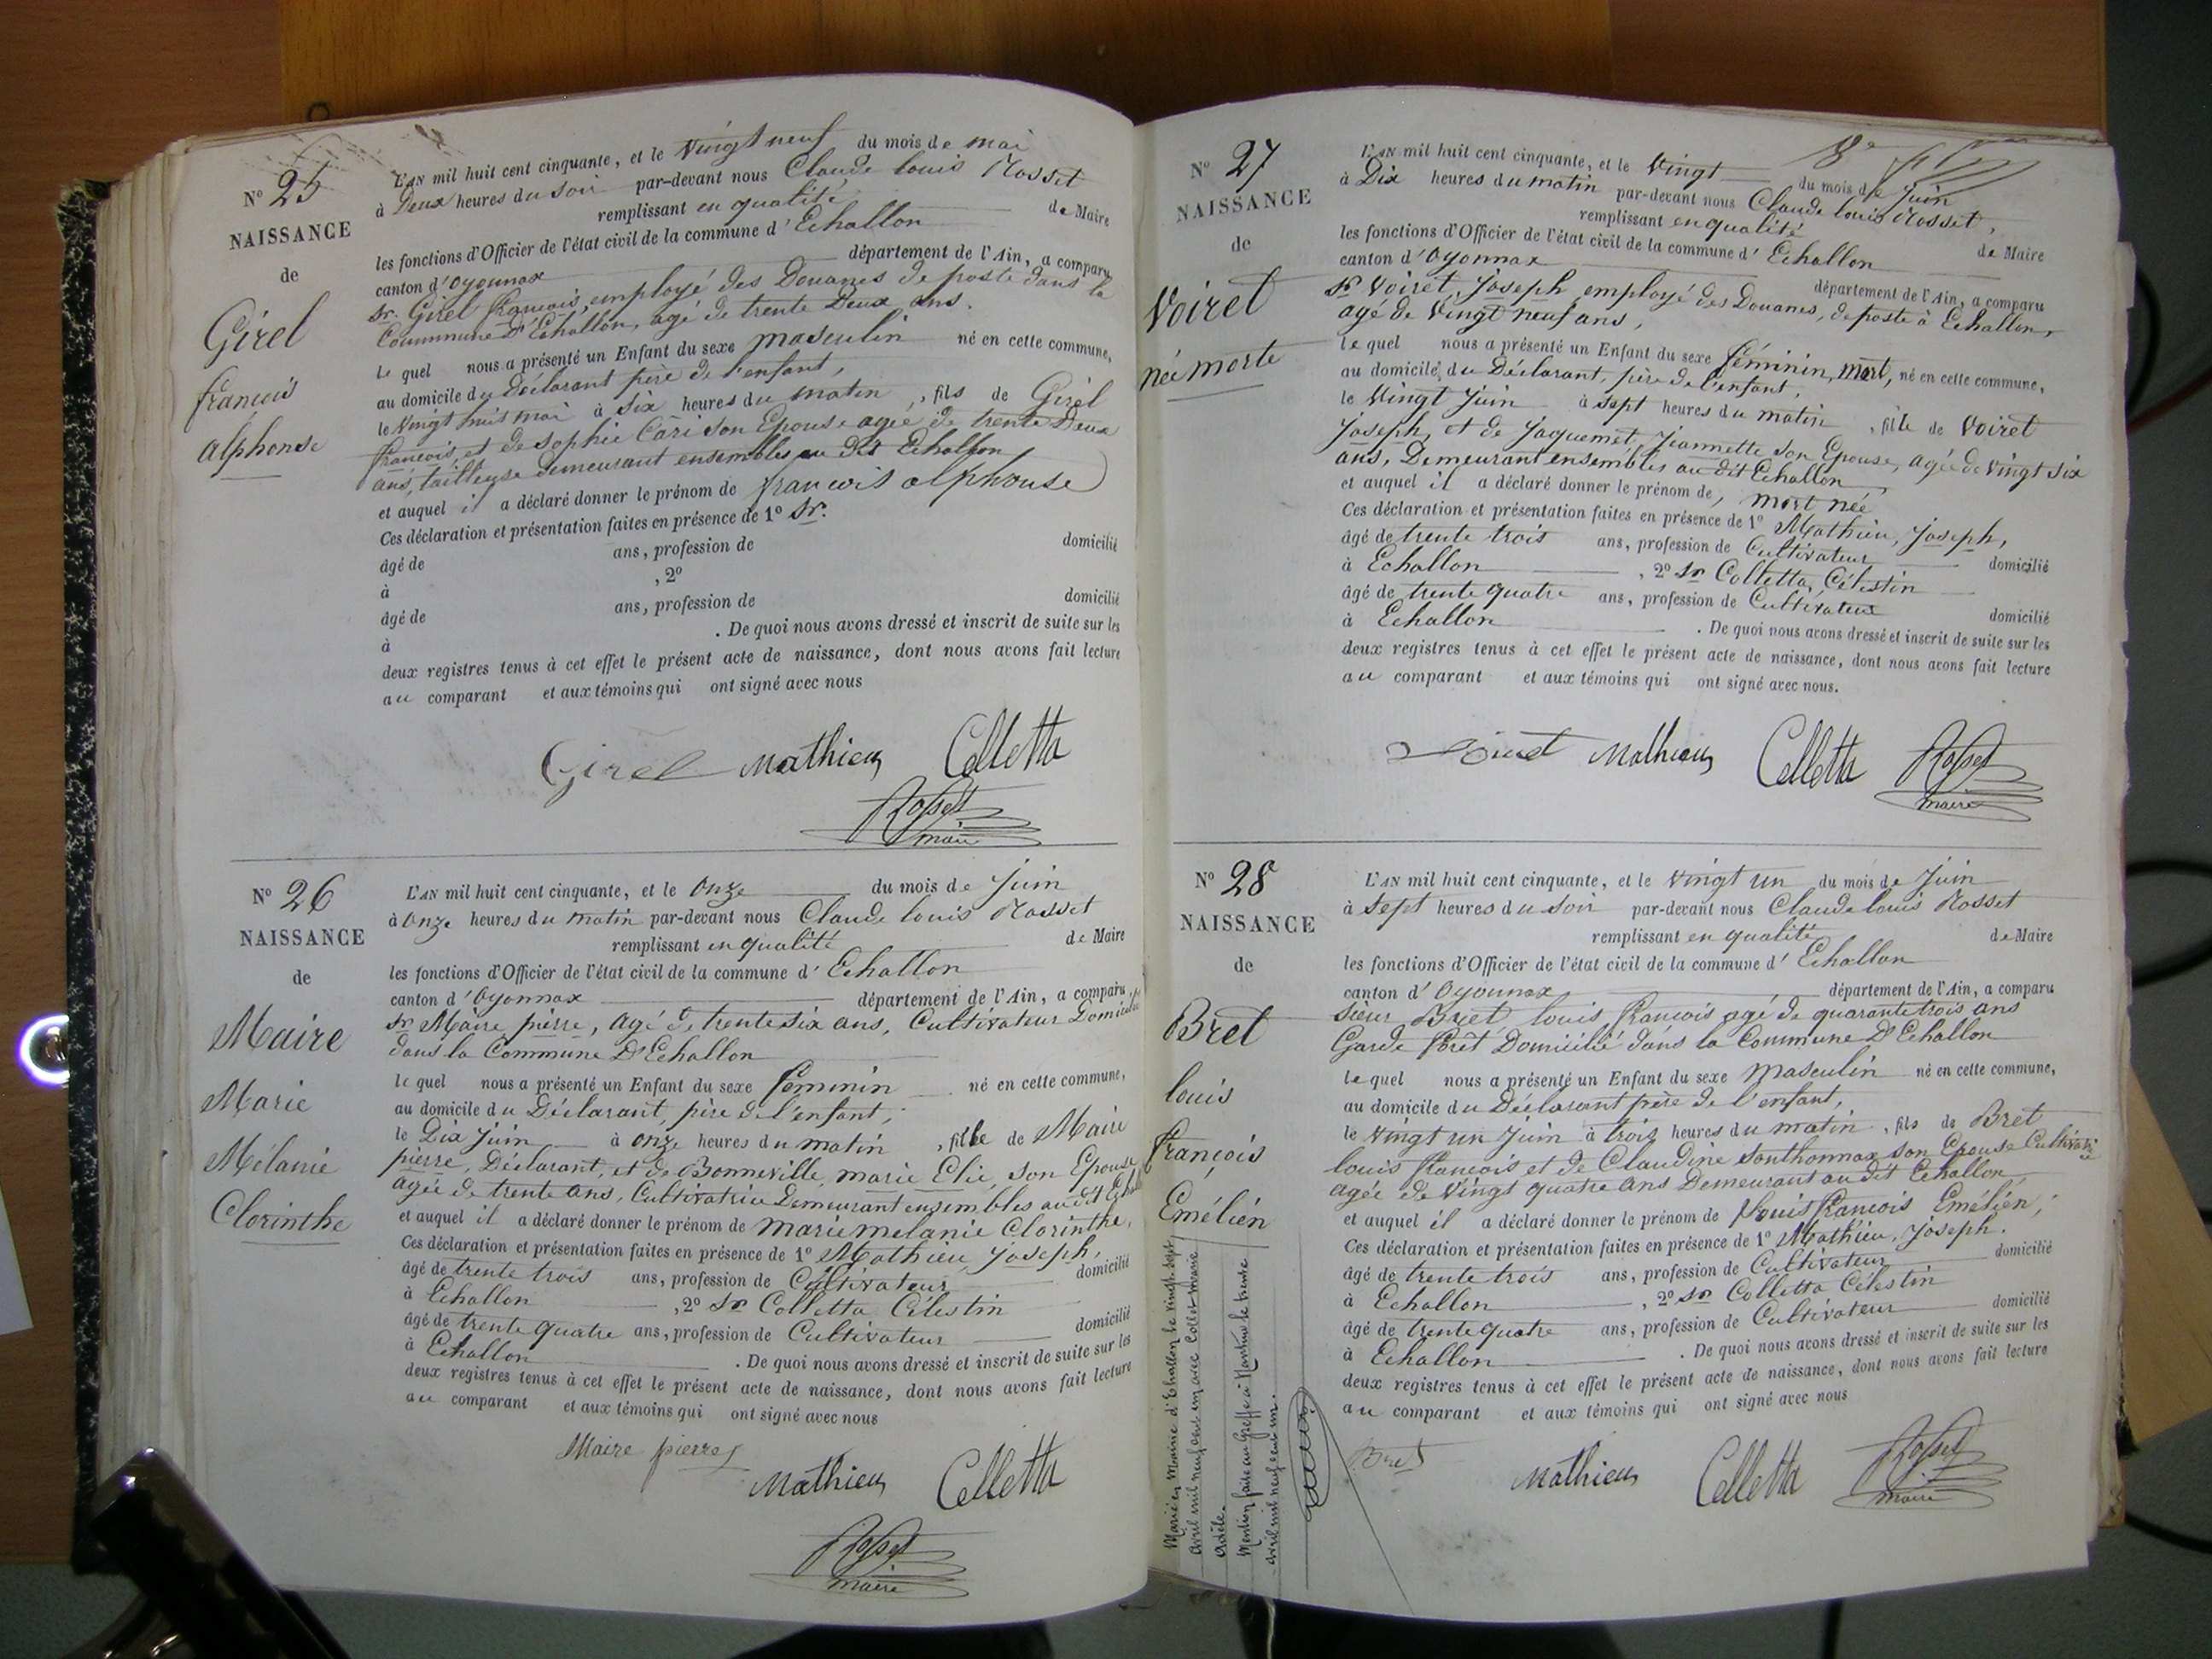 N° 25
NAISSANCE
de
Girel
françois
alphonse
L'AN mil huit cent cinquante, et le Vingt neuf du mois de mai
à Deux heures du soir par-devant nous Claude louis Rosset
remplissant en qualité de Maire
les fonctions d'Officier de l'état civil de la commune d'Echallon
canton d'Oyonnax département de l'Ain, a comparu
sr. Girel françois, employé des Douanes de poste dans la
Commune d'Echallon, agé de trente Deux ans.
le quel nous a présenté un Enfant du sexe masculin né en cette commune,
au domicile du Déclarant père de l'enfant,
le Vingt huit mai à Six heures du matin, fils de Girel
françois, et de sophie Cari son Epouse agée de trente Deux
ans, tailleuse demeurant ensembles au dit Echallon
et auquel il a déclaré donner le prénom de françois alphonse
Ces déclaration et présentation faites en présence de 1° Sr.
âgé de ans, profession de domicilié
à , 2°
âgé de ans, profession de domicilié
à . De quoi nous avons dressé et inscrit de suite sur les
deux registres tenus à cet effet le présent acte de naissance, dont nous avons fait lecture
au comparant et aux témoins qui ont signé avec nous
Girel Mathieu Colletta
Rosset
maire
N° 26
NAISSANCE
de
Maire
Marie
Mélanie
Clorinthe
L'AN mil huit cent cinquante, et le Onze du mois de Juin
à Onze heures du matin par-devant nous Claude louis Rosset
remplissant en qualité de Maire
les fonctions d'Officier de l'état civil de la commune d'Echallon
canton d'Oyonnax département de l'Ain, a comparu
sr Maire pierre, agé de trente six ans, Cultivateur Domicilié
dans la Commune D'Echallon
le quel nous a présenté un Enfant du sexe féminin né en cette commune,
au domicile du Déclarant, père de l'enfant,
le Dix Juin à onze heures du matin, fille de Maire
pierre, Déclarant, et de Bonneville, marie Elie, son Epouse
agée de trente ans, Cultivatrice Demeurant ensembles audit
et auquel il a déclaré donner le prénom de marie melanie Clorinthe,
Ces déclaration et présentation faites en présence de 1° Mathieu, Joseph,
âgé de trente trois ans, profession de Cultivateur domicilié
à Echallon , 2° Sr Colletta Célestin
âgé de trente quatre ans, profession de Cultivateur domicilié
à Echallon . De quoi nous avons dressé et inscrit de suite sur les
deux registres tenus à cet effet le présent acte de naissance, dont nous avons fait lecture
au comparant et aux témoins qui ont signé avec nous
Maire pierre
Mathieu Colletta
Rosset
maire
N° 27
NAISSANCE
de
Voiret
née morte
L'AN mil huit cent cinquante, et le Vingt du mois de Juin
à Dix heures du matin par-devant nous Claude louis Rosset,
remplissant en qualité de Maire
les fonctions d'Officier de l'état civil de la commune d'Echallon
canton d'Oyonnax département de l'Ain, a comparu
sr Voiret, Joseph, employé des Douanes, de poste à Echallon,
agé de Vingt neuf ans,
le quel nous a présenté un Enfant du sexe féminin, mort, né en cette commune,
au domicile, du Déclarant, père de l'enfant,
le Vingt Juin à sept heures du matin, fille de Voiret
Joseph, et de Jaquemet, Jeannette son Epouse, agée de Vingt six
ans, Demeurant ensembles au dit Echallon
et auquel il a déclaré donner le prénom de, mort née
Ces déclaration et présentation faites en présence de 1° Mathieu, Joseph,
âgé de trente trois ans, profession de Cultivateur domicilié
à Echallon , 2° sr Colletta, Célestin
âgé de trente quatre ans, profession de Cultivateur domicilié
à Echallon . De quoi nous avons dressé et inscrit de suite sur les
deux registres tenus à cet effet le présent acte de naissance, dont nous avons fait lecture
au comparant et aux témoins qui ont signé avec nous.
Voiret Mathieu Colletta Rosset
maire
N° 28
NAISSANCE
de
Bret
louis
françois
Emélién
L'AN mil huit cent cinquante, et le vingt un du mois de Juin
à sept heures du soir par-devant nous Claude louis Rosset
remplissant en qualité de Maire
les fonctions d'Officier de l'état civil de la commune d'Echallon
canton d'Oyonnax département de l'Ain, a comparu
sieur Bret louis françois agé de quarante trois ans
Garde forêt Domicilié dans la Commune D'Echallon
le quel nous a présenté un Enfant du sexe masculin né en cette commune,
au domicile du Déclarant père de l'enfant,
le vingt un Juin à trois heures du matin, fils de Bret
louis françois et de Claudine Sonthonnax son Epouse
agée de Vingt quatre ans Demeurant au dit Echallon
et auquel il a déclaré donner le prénom de louis françois Emélién,
Ces déclaration et présentation faites en présence de 1° Mathieu, Joseph.
âgé de trente trois ans, profession de Cultivateur domicilié
à Echallon , 2° sr Colletta Célestin
âgé de trente quatre ans, profession de Cultivateur domicilié
à Echallon . De quoi nous avons dressé et inscrit de suite sur les
deux registres tenus à cet effet le présent acte de naissance, dont nous avons fait lecture
au comparant et aux témoins qui ont signé avec nous
Bret Mathieu Colletta Rosset
maire
Marié en Mairie d'Echallon le vingt sept
avril mil neuf cent un avec Collet Marie
Adèle.
Mention faite au Greffe à Nantua le trente
avril mil neuf cent un.